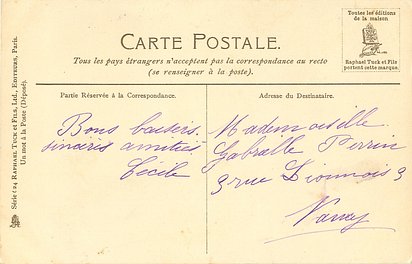 Toutes les éditions
de la maison
Raphael Tuck et Fils
portent cette marque.
CARTE POSTALE.
Tous les pays étrangers n'acceptent pas la correspondance au recto
(se renseigner à la poste).
Partie Réservée à la Correspondance.
Adresse du Destinataire.
Bons baisers.
sincères amitiés
Cécile
Mademoiselle
Gabrielle Perrin
9 rue Dionnois 9
Nancy
Série 124 RAPHAEL TUCK ET FILS, LTD., EDITEURS, PARIS.
Un mot à la Poste (Déposé).